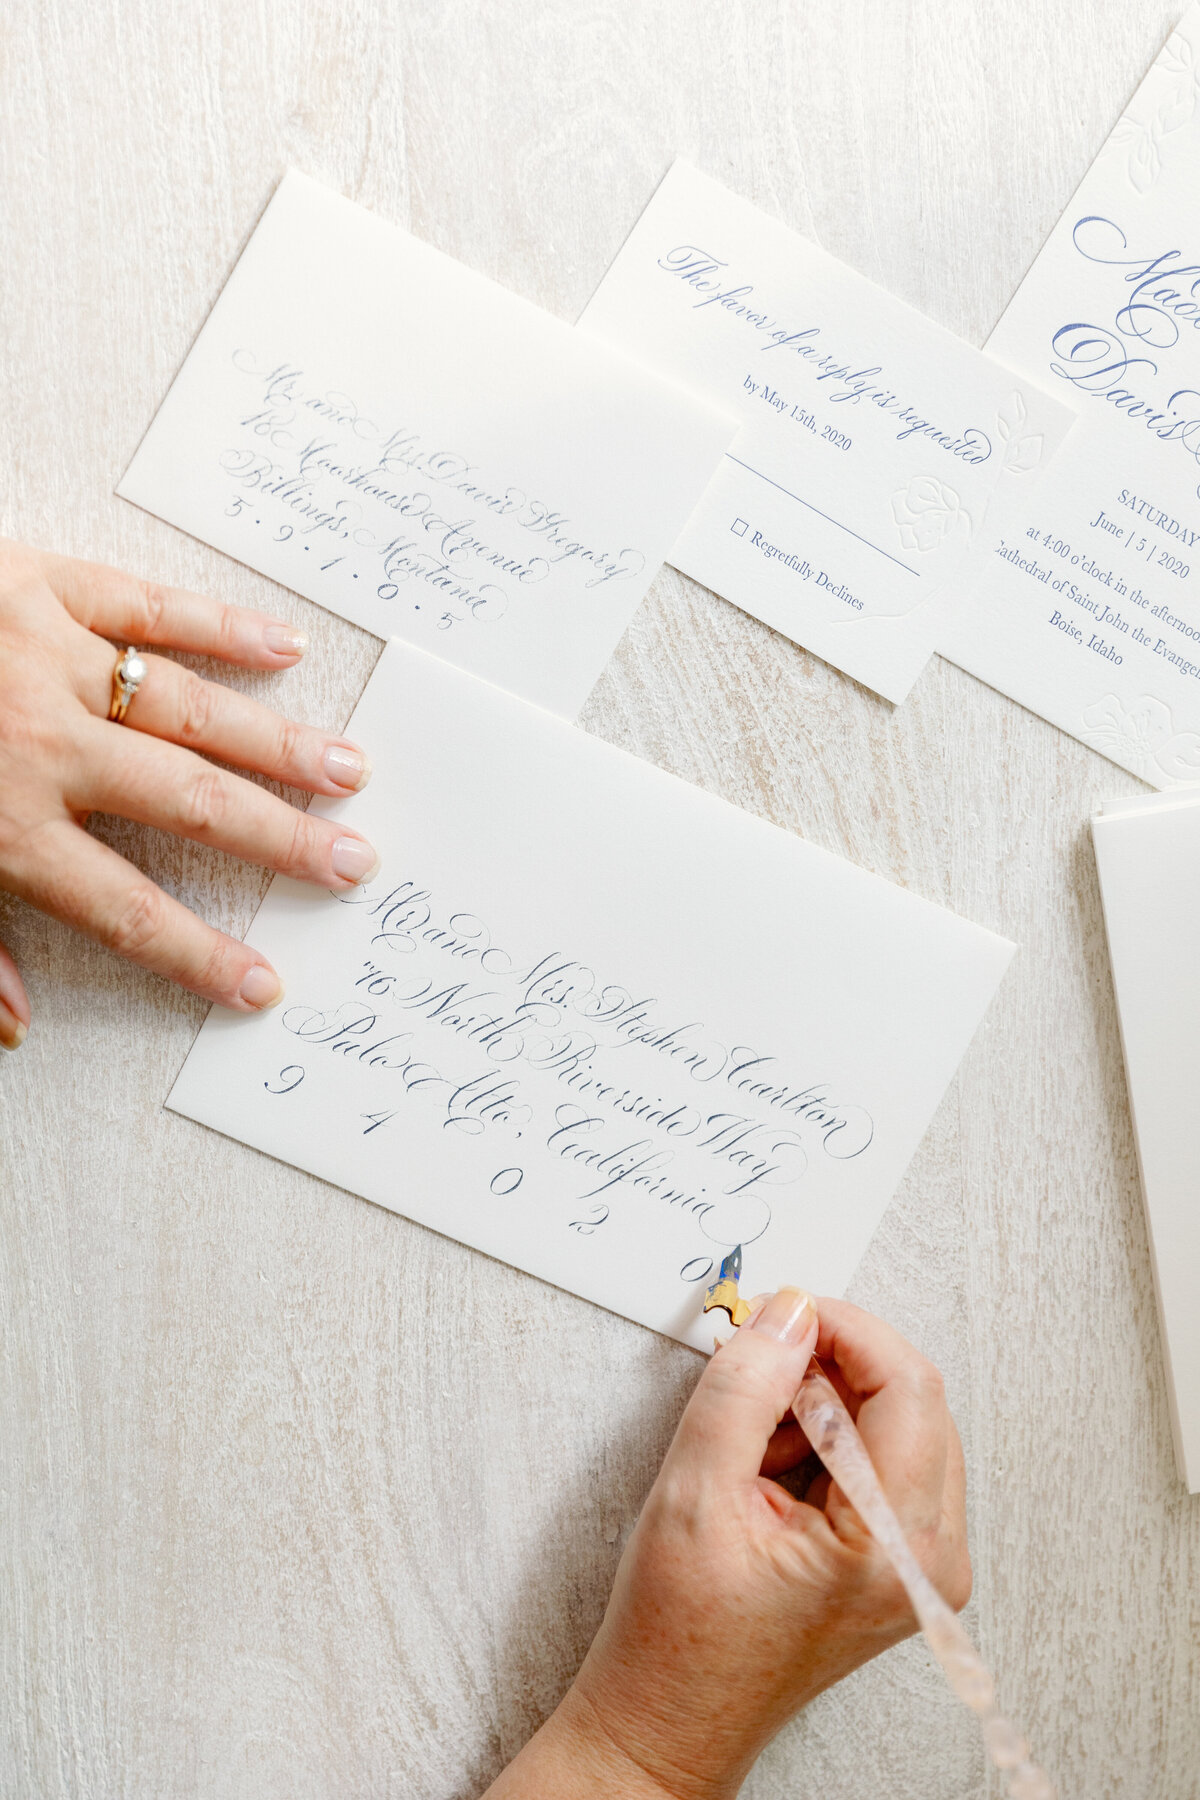 Mr. and Mrs. Davis Gregory
18 Moorhouse Avenue
Billings, Montana
5 · 9 · 1 · 0 · 5
The favor of a reply is requested
by May 15th, 2020
Regretfully Declines
Davis
SATURDAY
June | 5 | 2020
at 4:00 o'clock in the afternoon
Cathedral of Saint John the Evangel
Boise, Idaho
Mr. and Mrs. Stephen Carlton
76 North Riverside Way
Palo Alto, California
9 4 0 2 0